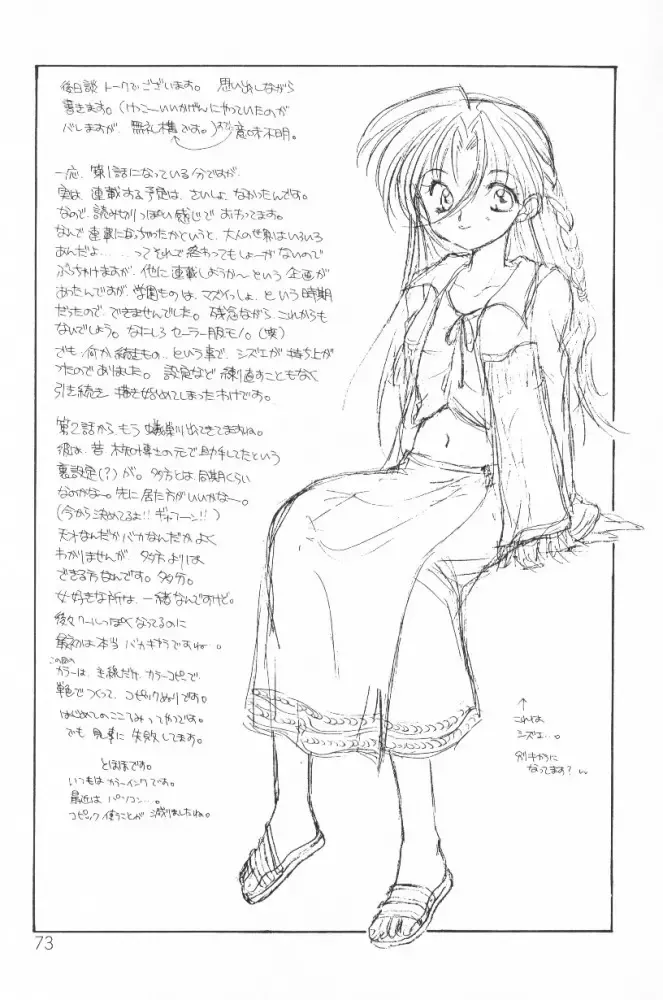 後日談トークでございます。 思い出しながら
書きます。(けっこーいいかげんにやっていたのが
バレますが、無礼構です。) 意味不明。
一応、第1話になっている分ですが
実は 連載する予定は、さいしょ なかったんです。
なので、読み切りっぽい感じで おわってます。
なんで連載になっちゃったかというと、大人の世界はいろいろ
あんだよ……ってそれで終わってもしょーがないので
ぶっちゃけますが、他に連載しようか〜という企画が
あったんですが、学園ものは、マズイっしょ、という時期
だったので、できませんでした。残念ながら、これからも
ないでしょう。なにしろ セーラー服モノ。(笑)
でも、何か続きもの、という事で、シズエが持ち上が
ったのでありました。設定など練り直すこともなく
引き続き 描き始めてしまったわけです。
第2話から もう 蟻巣川出てきてますね。
彼は、昔 博士の元で助手してたという
裏設定(?)が。多方とは同期くらい
なのかな〜。先に居た方がいいかな〜。
(今から決めてるよ!! ギャフーン!!)
天才なんだかバカなんだかよく
わかりませんが、多方よりは
できる方なんです。多分。
女好きな所は、一緒なんですけど。
後々クールっぽくなってるのに
最初は本当 バカキャラですね。
この回の
カラーは、主線だけ、カラーコピーで、
単色でつくって、コピックぬりです。
はじめてのこころみってやつです。
でも 見事に失敗してます。
とほほです。
いつもは カラーインクです。
最近は パソコン…。
コピック使うことが減りましたね。
↑
これは
シズエ…。
別キャラに
なってます?
73